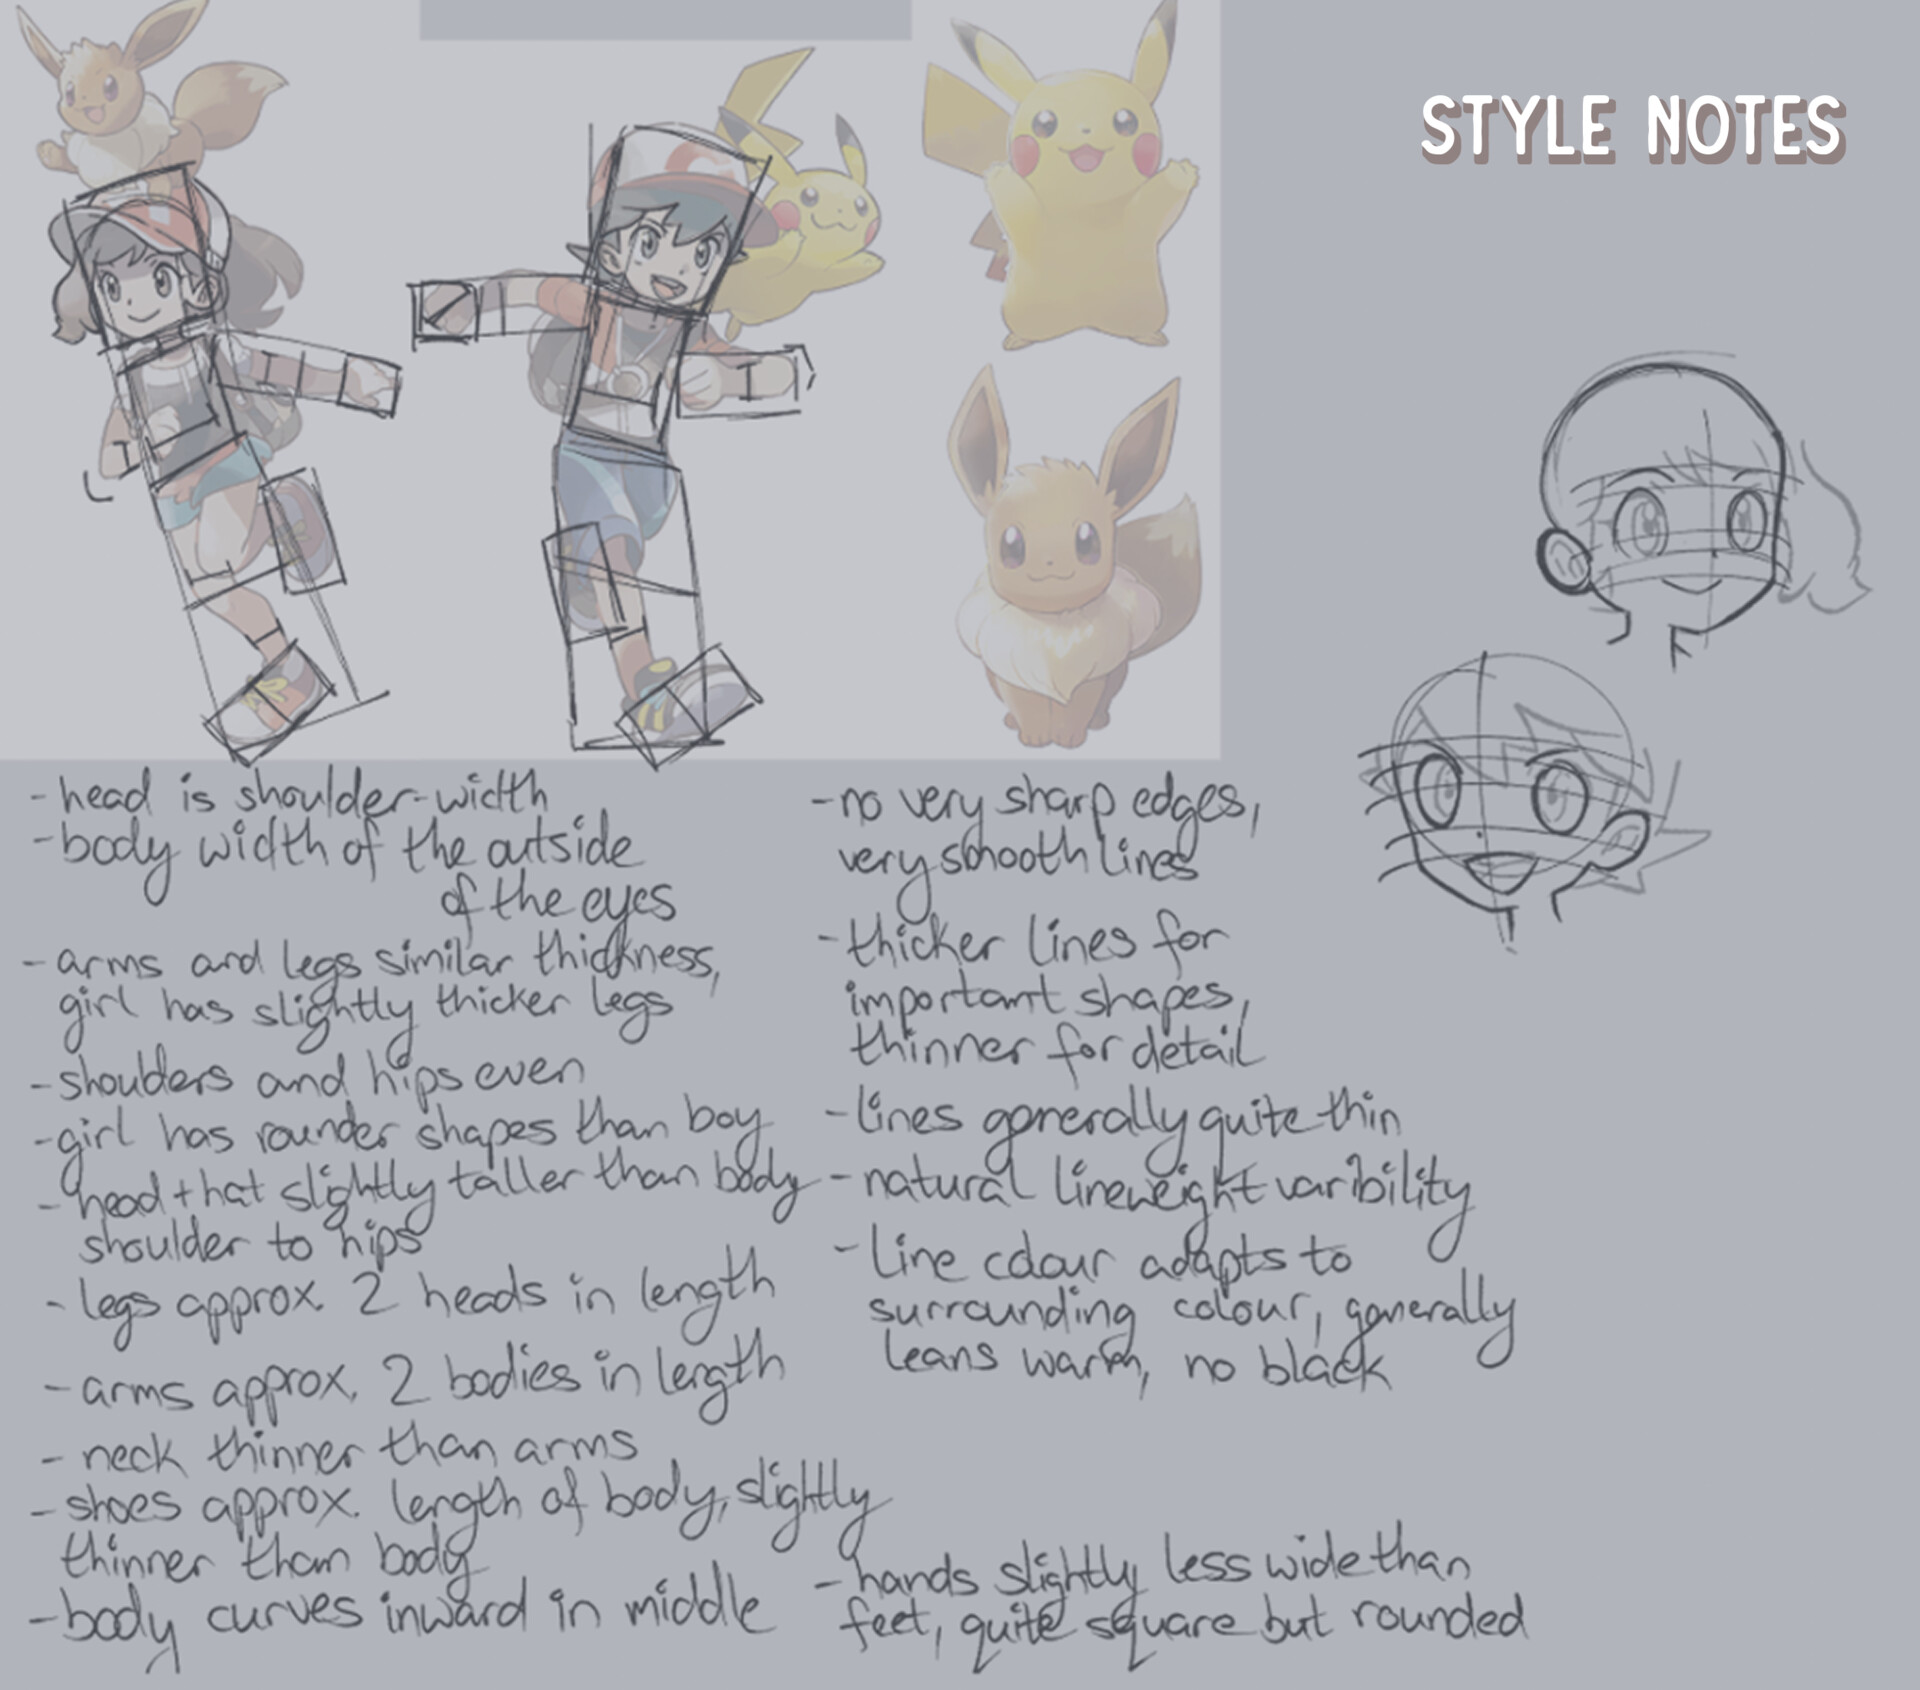 STYLE NOTES
- head is shoulder-width
- body width of the outside
of the eyes
- arms and legs similar thickness,
girl has slightly thicker legs
- shoulders and hips even
- girl has rounder shapes than boy
- head + hat slightly taller than body
shoulder to hips
- legs approx. 2 heads in length
- arms approx. 2 bodies in length
- neck thinner than arms
- shoes approx. length of body, slightly
thinner than body
- body curves inward in middle
- no very sharp edges,
very smooth lines
- thicker lines for
important shapes,
thinner for detail
- lines generally quite thin
- natural lineweight varibility
- line colour adapts to
surrounding colour, generally
leans warm, no black
- hands slightly less wide than
feet, quite square but rounded